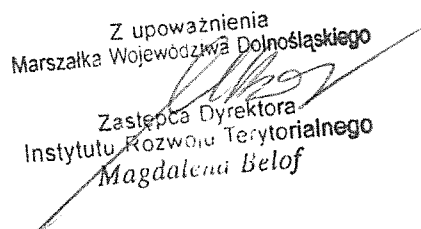 Z upoważnienia
Marszałka Województwa Dolnośląskiego
Zastępca Dyrektora
Instytutu Rozwoju Terytorialnego
Magdalena Belof